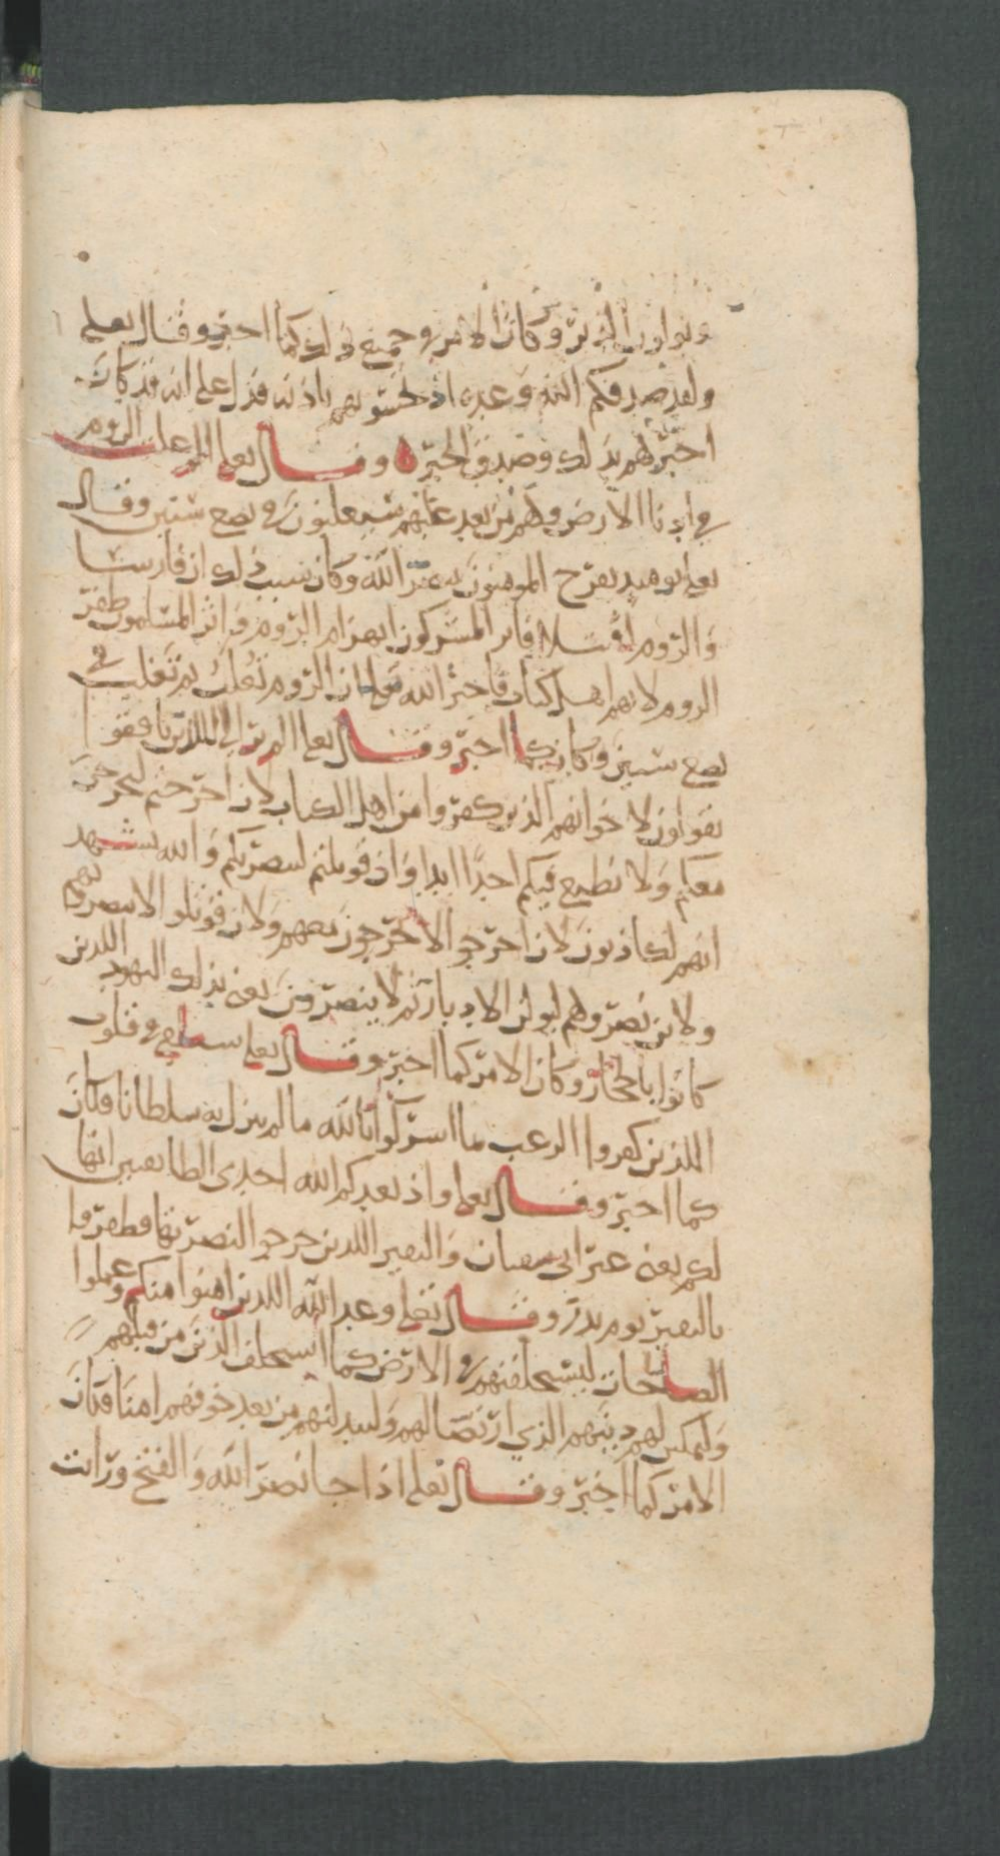 ويولون الدبر وكان الامر في جميع ذلك كما اخبر وقال تعلى
ولقد صدقكم الله وعده اذ تحسونهم باذنه فدل على انه قد كان
اخبرهم بذلك وصدق الخبر ٥ وقال تعلى الم غلبت الروم
في ادنا الارض وهم من بعد غلبهم سيغلبون في بضع سنين وقال
تعلى يوميذ يفرح المومنون بنصر الله وكان سبب ذلك ان فارسا
والروم اقتتلا فاثر المشركون ان الروم واثر المسلمون ظفر
الروم لانهم اهل كتاب فاخبر الله تعلى ان الروم تغلب ثم تغلب في
بضع سنين وكان كما اخبر وقال تعلى الم تر الى اللذين نافقو
يقولون لاخوانهم الذين كفروا من اهل الكتاب لان اخرجتم لنخرجن
معكم ولا نطيع فيكم احدا ابدا وان قوتلتم لننصرنكم والله يشهد
انهم لكاذبون لان اخرجو الا يخرجون معهم ولان قوتلو الا ينصرونهم
ولان نصروهم ليولن الادبار ثم لا ينصرون يعني بذلك اليهود اللدين
كانوا بالحجاز وكان الامر كما اخبر وقال تعلى سنلقي في قلوب
اللذين كفروا الرعب بما اشركوا بالله ما لم ينزل به سلطانا فكان
كما اخبر وقال تعلى واذ يعدكم الله احدى الطايفتين انها
لكم يعني عير ابي سفيان والنفير اللدين خرجو النصرتها فظفروا
بالنفير يوم بدر وقال تعلى وعد الله اللذين امنوا منكم وعملوا
الصالحات ليستخلفنهم في الارض كما استخلف الذين من قبلهم
وليمكنن لهم دينهم الذي ارتضا لهم وليبدلنهم من بعد خوفهم امنا فكان
الامر كما اخبر وقال تعلى اذا جا نصر الله والفتح ورايت